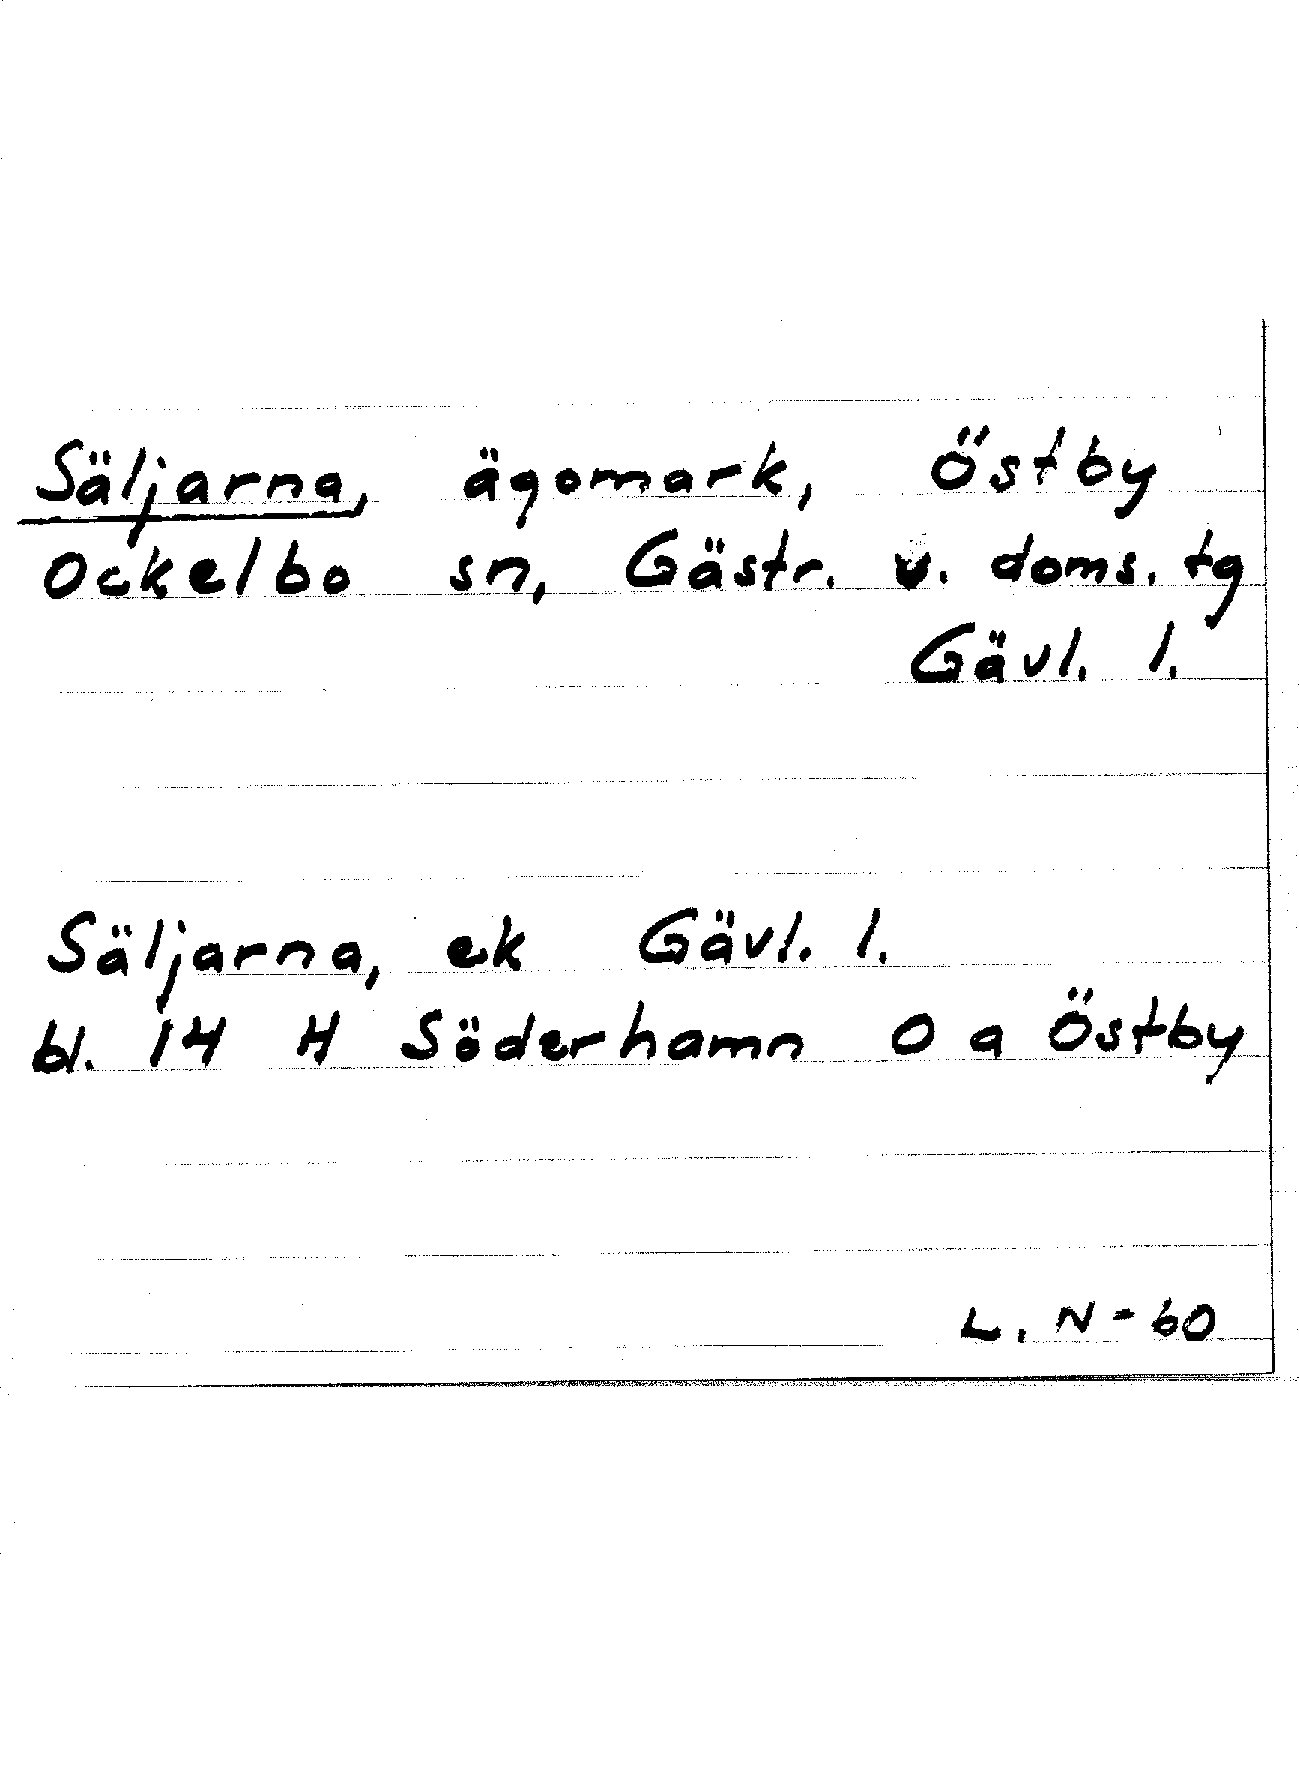 Säljarna, ägomark, Östby
Ockelbo sn, Gästr. v. doms. tg
Gävl. l.
Säljarna, ek Gävl. l.
bl. 14 H Söderhamn O a Östby
L. N - 60